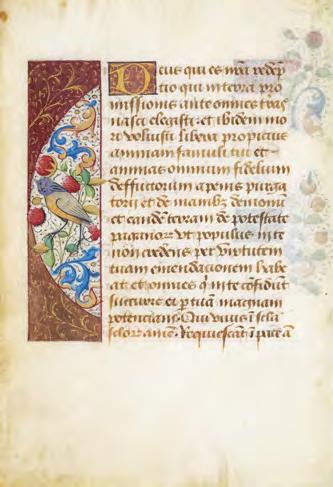 Deus qui es nr̄a redēp
tio qui in terra pro
missionis ante omnes tr̄as
nasci elegisti: et ibidem mo
rte voluisti libera propicius
animam famuli tui et
animas omnium fidelium
deffunctorum a penis purga
torii et de manibꝫ demonū
et eandē terram de potestate
paganorꝫ vt populus in te
non credens per virtutem
tuam emendacionem habe
at et omnes q̄ in te cōfidūt
succurre et ꝑ tuā magnam
potenciam. Qui viuis ī scl̄a
scl̄oꝝ amē. Requiescāt ī pace ā